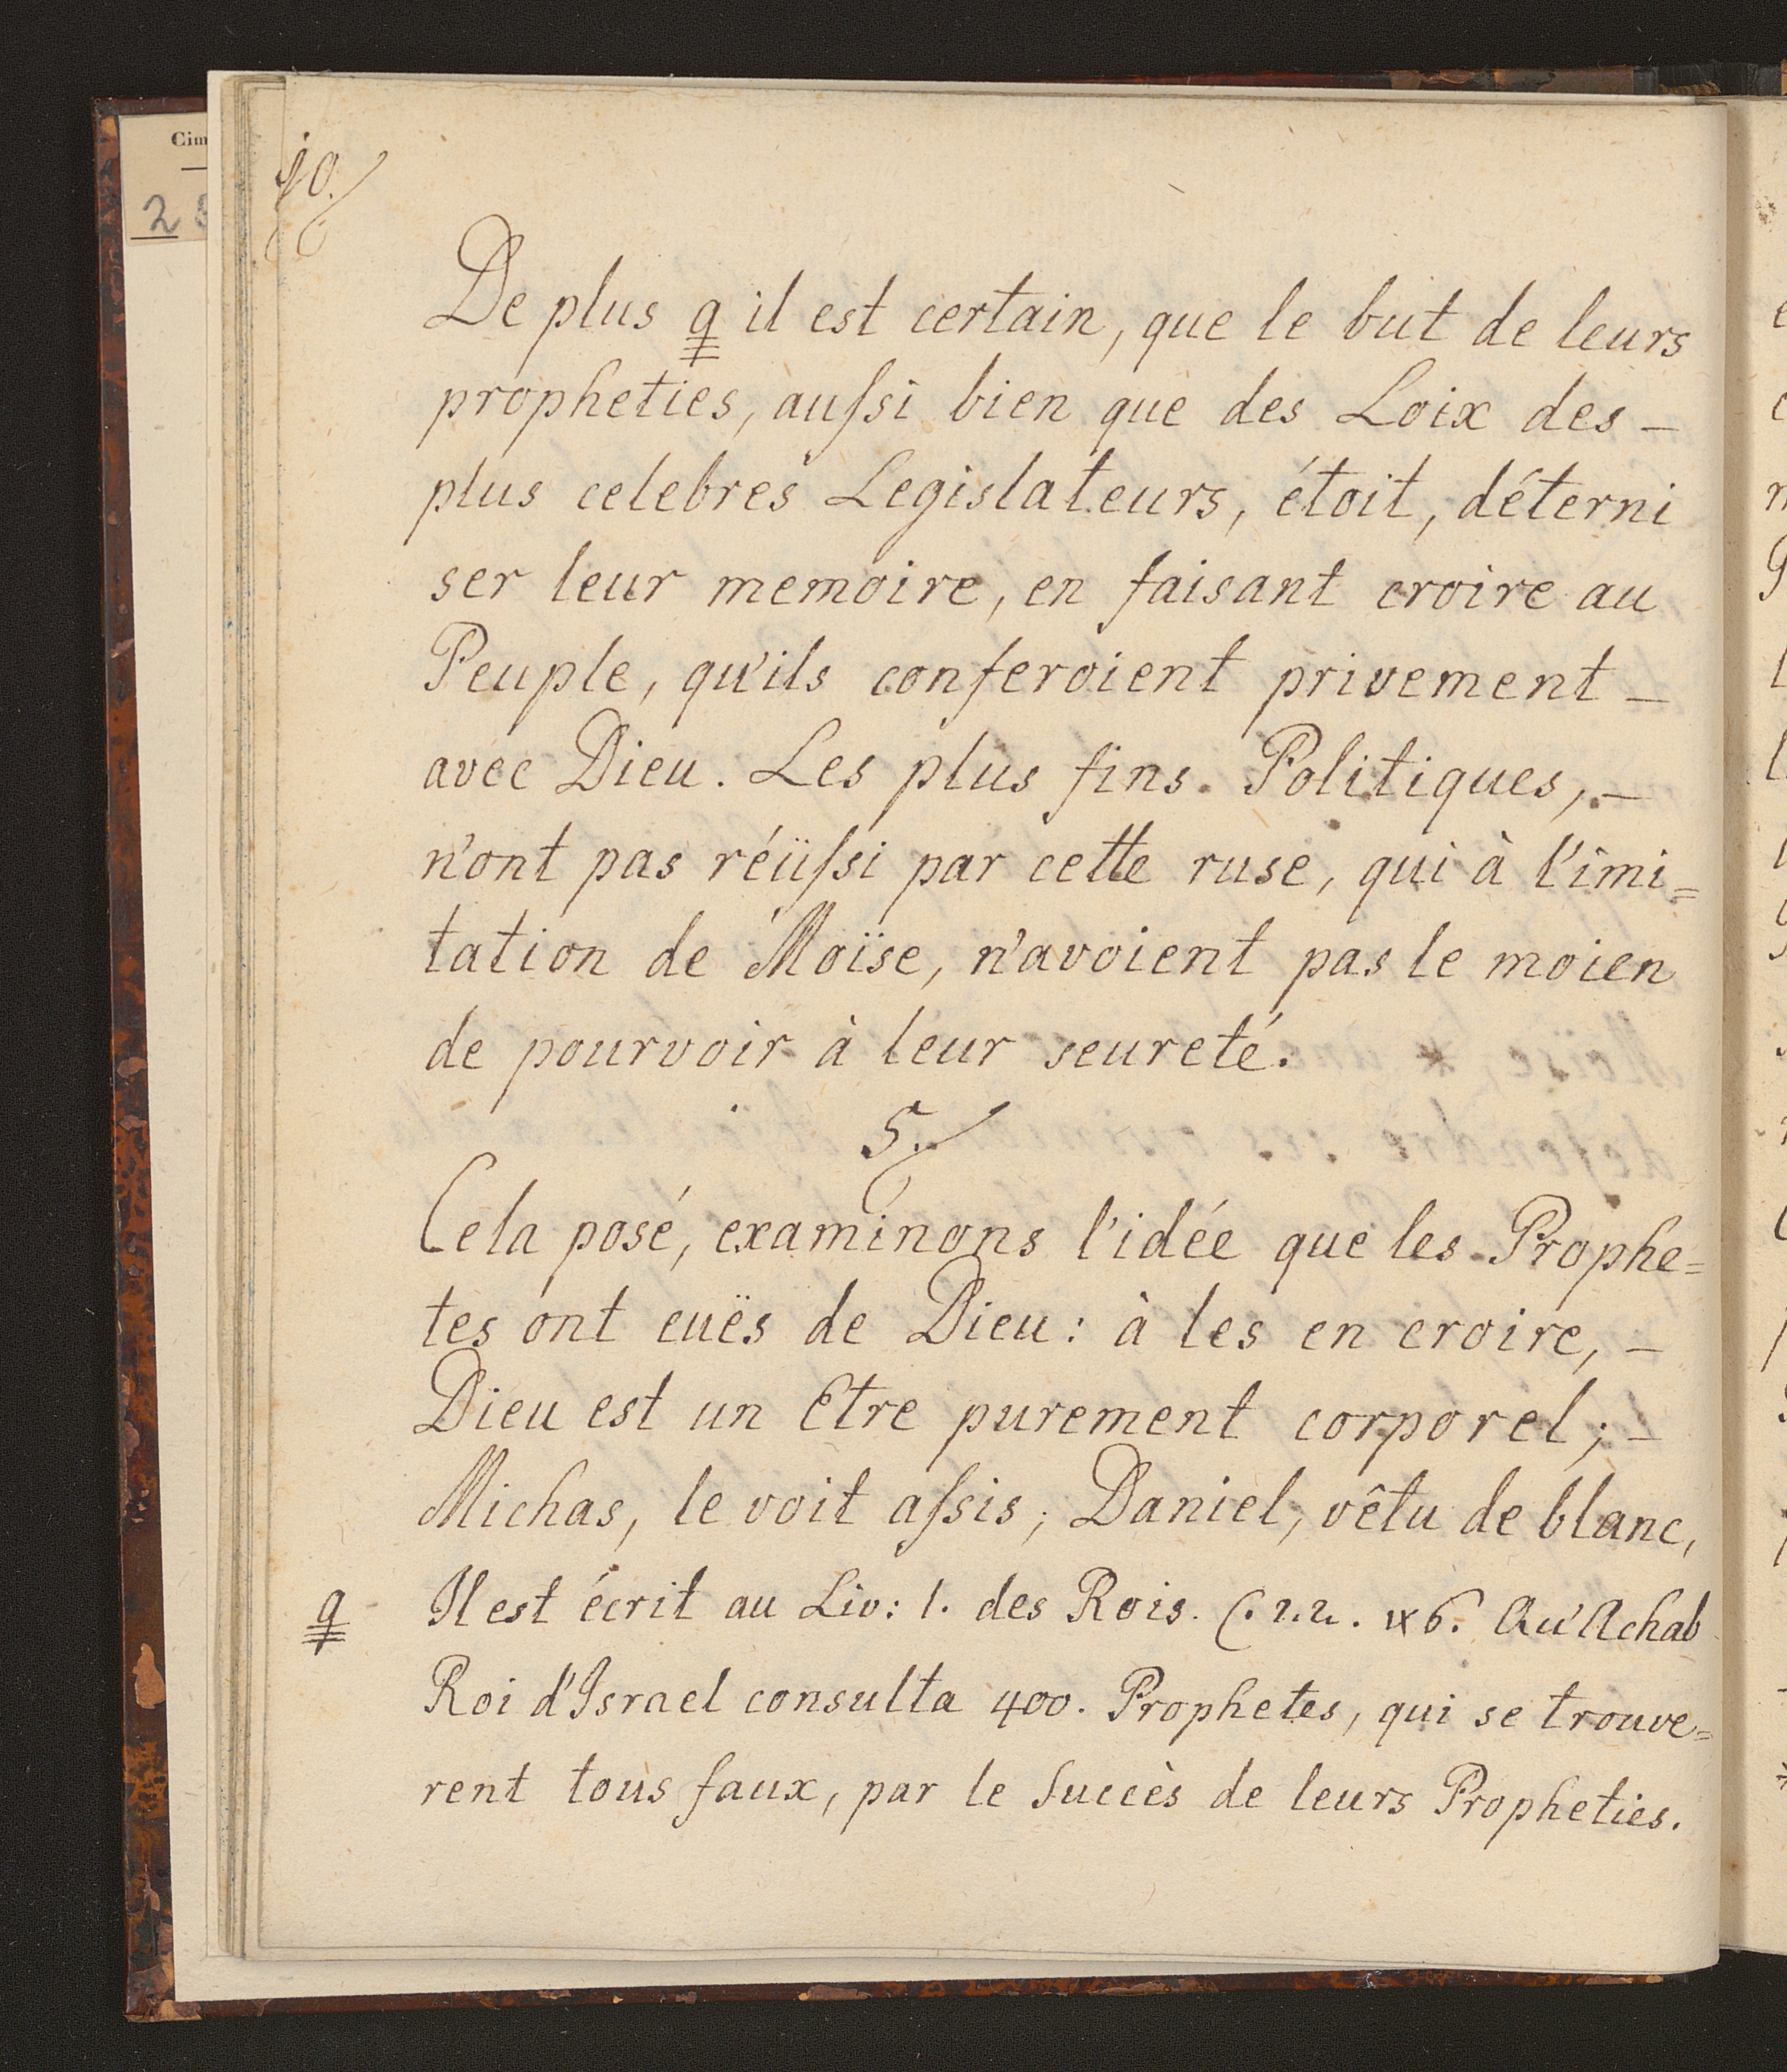 Cim
2
10.
De plus q il est certain, que le but de leurs
propheties, auſsi bien que des Loix des –
plus celebres Legislateurs, étoit, déterni
ser leur memoire, en faisant croire au
Peuple, qu'ils conferoient privement –
avec Dieu. Les plus fins. Politiques, –
n'ont pas réüſsi par cette ruse, qui à l'imi=
tation de Moïse, n'avoient pas le moien
de pourvoir à leur seureté.
5.
Cela posé, examinons l'idée que les Prophe=
tes ont euës de Dieu: à les en croire, –
Dieu est un Etre purement corporel; –
Michas, le voit aſsis; Daniel, vêtu de blanc,
q Il est écrit au Liv: 1. des Rois. C. 22. ꝟ 6. Qu'Achab
Roi d'Israel consulta 400. Prophetes, qui se trouve=
rent tous faux, par le Succès de leurs Propheties.